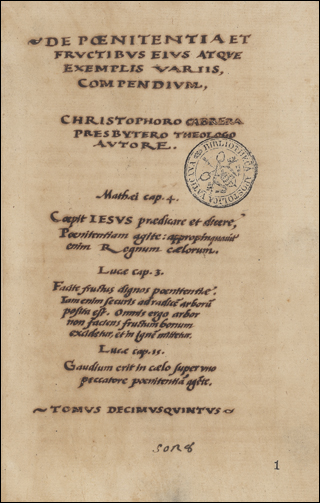 DE POENITENTIA ET
FRVCTIBVS EIVS ATQVE
EXEMPLIS VARIIS,
COMPENDIVM,
CHRISTOPHORO CABRERA
PRESBYTERO THEOLOGO
AVTORE.
BIBLIOTHECA APOSTOLICA VATICANA
Mathæi cap. 4.
Cœpit IESVS prædicare et dicere,
Pœnitentiam agite: appropinquauit
enim Regnum cælorum.
Lucæ cap. 3.
Facite fructus dignos pœnitentiæ.
Iam enim securis ad radicē arborū
posita est. Omnis ergo arbor
non faciens fructum bonum
excidetur, et in ignē mittetur.
Lucæ cap. 15.
Gaudium erit in cælo super vno
peccatore pœnitentiā agēte.
TOMVS DECIMVSQVINTVS
1